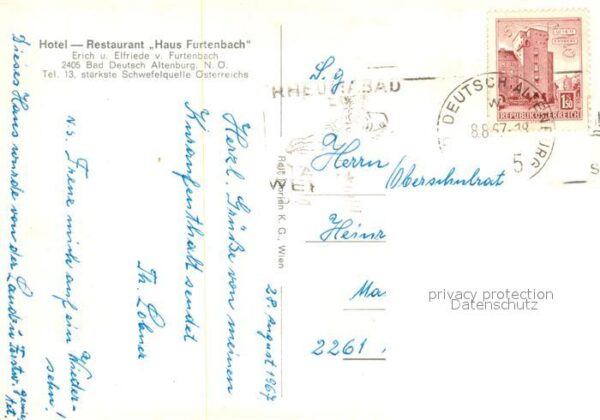 Hotel — Restaurant „Haus Furtenbach"
Erich u. Elfriede v. Furtenbach
2405 Bad Deutsch Altenburg, N. Ö.
Tel. 13, stärkste Schwefelquelle Österreichs
28. August 1967
Herzl. Grüße von meinem
Kuraufenthalt sendet
Th. Lohner
NS. Freue mich auf ein Wieder-
sehn!
Dieses Haus wurde von der
S. g.
Herrn
Oberschulrat
Heinr
Ma
2261
K. G., Wien
RHEUMABAD
DEUTSCH-AL
BURG
8.8.67-18
5
WIEN
1.50
REPUBLIK ÖSTERREICH
privacy protection
Datenschutz